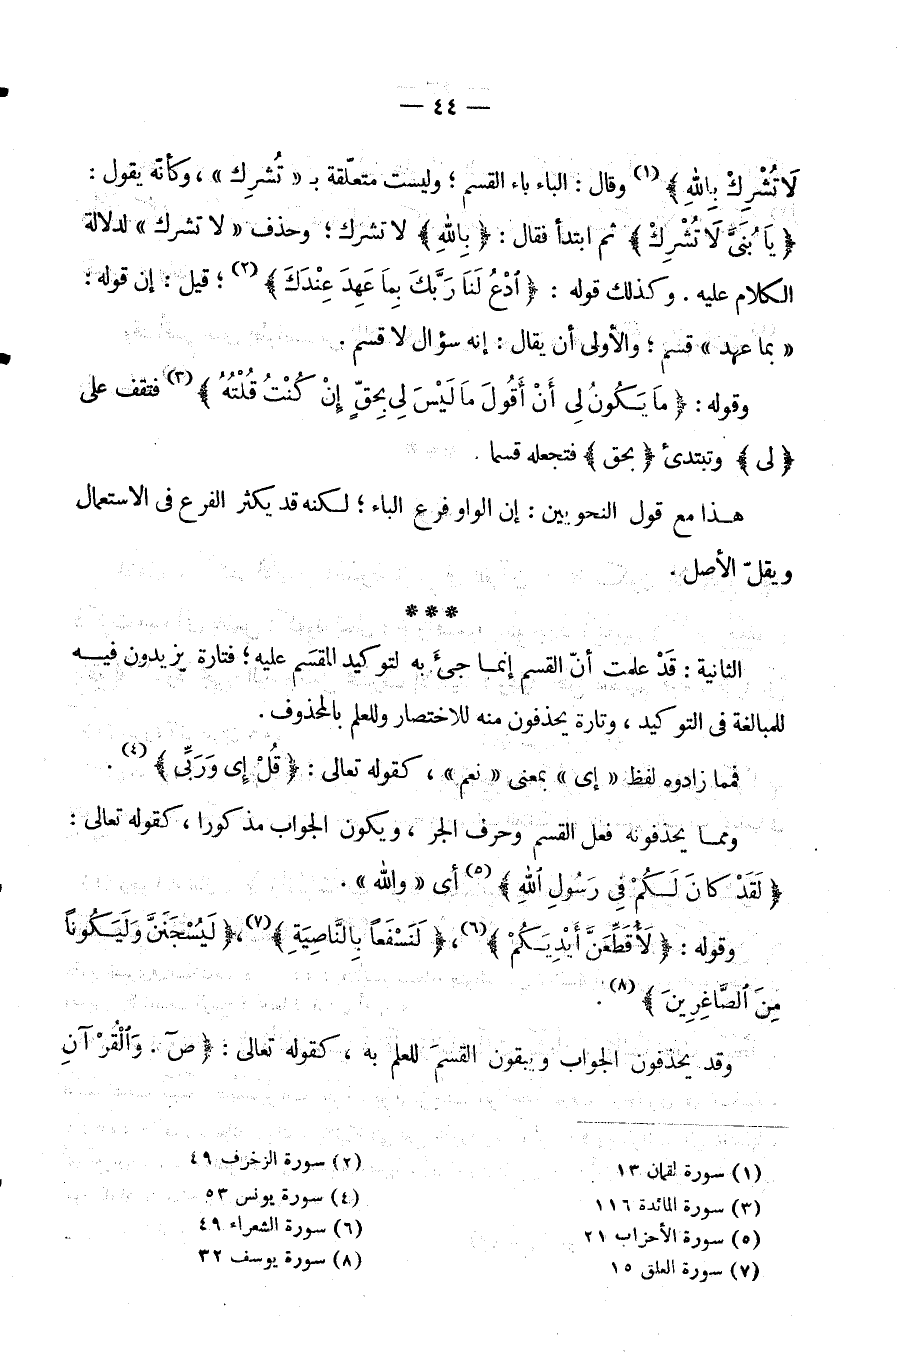 — ٤٤ —
لَا تُشْرِكْ بِاللهِ ﴾ (١) وقال : الباء باء القسم ؛ وليست متعلّقة بـ « تُشرِك » ، وكأنّه يقول :
﴿ يَا بُنَىَّ لَا تُشْرِكْ ﴾ ثم ابتدأ فقال : ﴿ بِاللهِ ﴾ لا تشرك ؛ وحذف « لا تشرك » لدلالة
الكلام عليه . وكذلك قوله : ﴿ ٱدْعُ لَنَا رَبَّكَ بِمَا عَهِدَ عِنْدَكَ ﴾ (٢) ؛ قيل : إن قوله :
« بما عهد » قسم ؛ والأولى أن يقال : إنه سؤال لا قسم .
وقوله : ﴿ مَا يَكُونُ لِى أَنْ أَقُولَ مَا لَيْسَ لِى بِحَقٍّ إِنْ كُنْتُ قُلْتُهُ ﴾ (٣) فتقف على
﴿ لى ﴾ وتبتدئ ﴿ بحق ﴾ فتجعله قسما .
هـذا مع قول النحويين : إن الواو فرع الباء ؛ لكنه قد يكثر الفرع فى الاستعمال
ويقلّ الأصل .
* * *
الثانية : قَدْ علمت أنّ القسم إنمـا جىءَ به لتوكيد المقسَم عليه ؛ فتارة يزيدون فيـه
للمبالغة فى التوكيد ، وتارة يحذفون منه للاختصار وللعلم بالمحذوف .
فمما زادوه لفظ « إى » بمعنى « نعم » ، كقوله تعالى : ﴿ قُلْ إِى وَرَبِّى ﴾ (٤) .
وممـا يحذفونه فعل القسم وحرف الجر ، ويكون الجواب مذكورا ، كقوله تعالى :
﴿ لَقَدْ كَانَ لَكُمْ فِى رَسُولِ ٱللهِ ﴾ (٥) أى « والله » .
وقوله : ﴿ لَأُقَطِّعَنَّ أَيْدِيَكُمْ ﴾ (٦) ، ﴿ لَنَسْفَعاً بِالنَّاصِيَةِ ﴾ (٧) ، ﴿ لَيُسْجَنَنَّ وَلَيَكُوناً
مِنَ ٱلصَّاغِرِينَ ﴾ (٨) .
وقد يحذفون الجواب ويبقون القسمَ للعلم به ، كقوله تعالى : ﴿ صٓ . وَٱلْقُرْآنِ
(١) سورة لقمان ١٣ (٢) سورة الزخرف ٤٩
(٣) سورة المائدة ١١٦ (٤) سورة يونس ٥٣
(٥) سورة الأحزاب ٢١ (٦) سورة الشعراء ٤٩
(٧) سورة العلق ١٥ (٨) سورة يوسف ٣٢